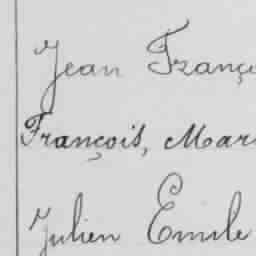 Jean Franço
François, Mar
Julien Emile